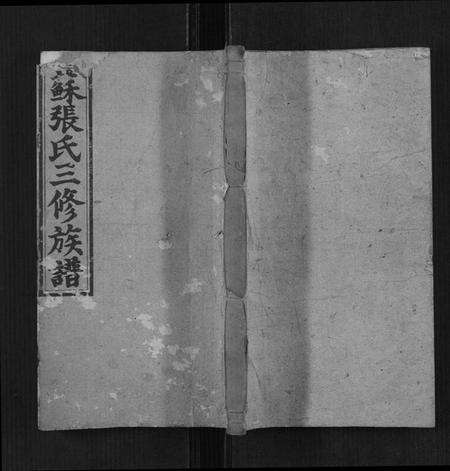 蘇張氏三修族譜